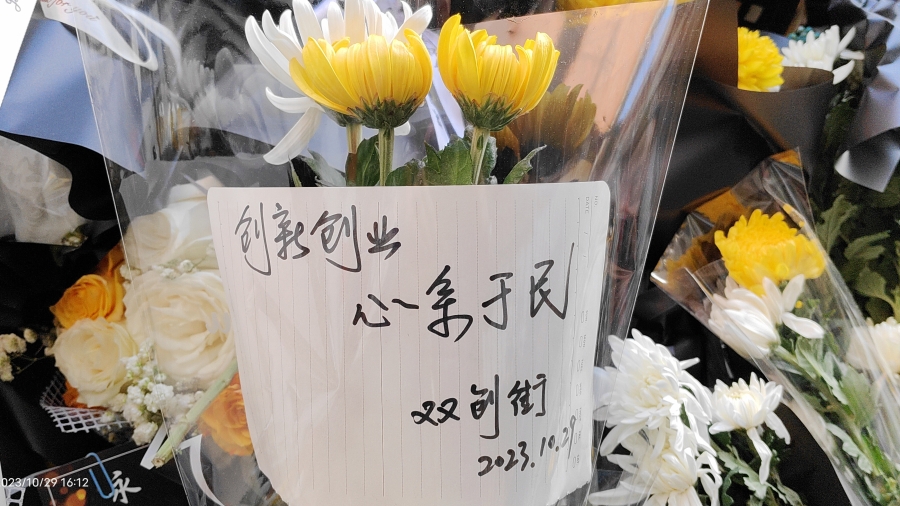 for good
创新创业
心系于民
双创街
2023.10.29
永
023/10/29 16:12